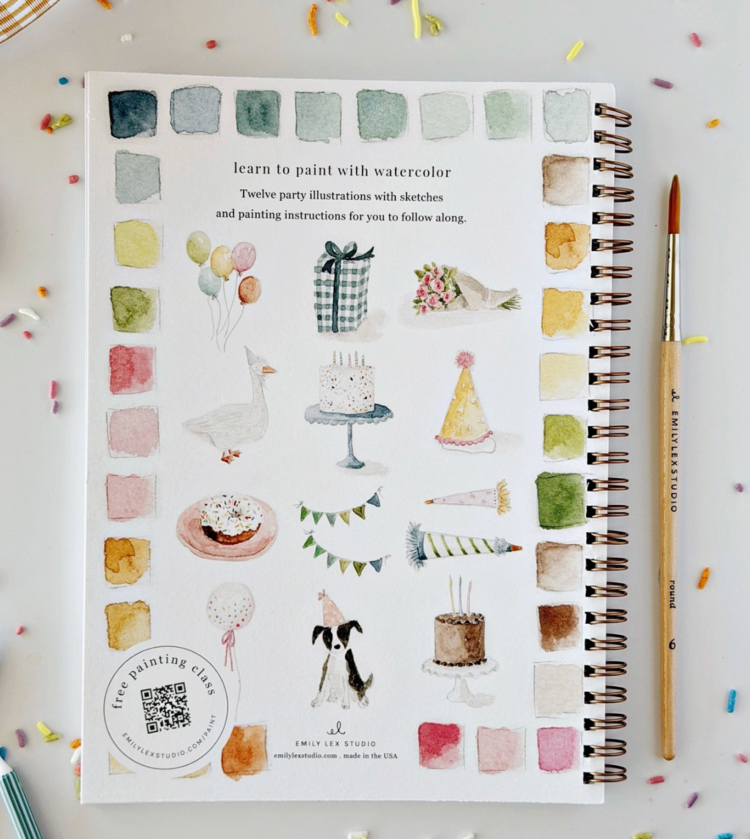 learn to paint with watercolor
Twelve party illustrations with sketches
and painting instructions for you to follow along.
free painting class
EMILYLEXSTUDIO.COM/PAINT
el
EMILY LEX STUDIO
emilylexstudio.com . made in the USA
el EMILYLEXSTUDIO round 6